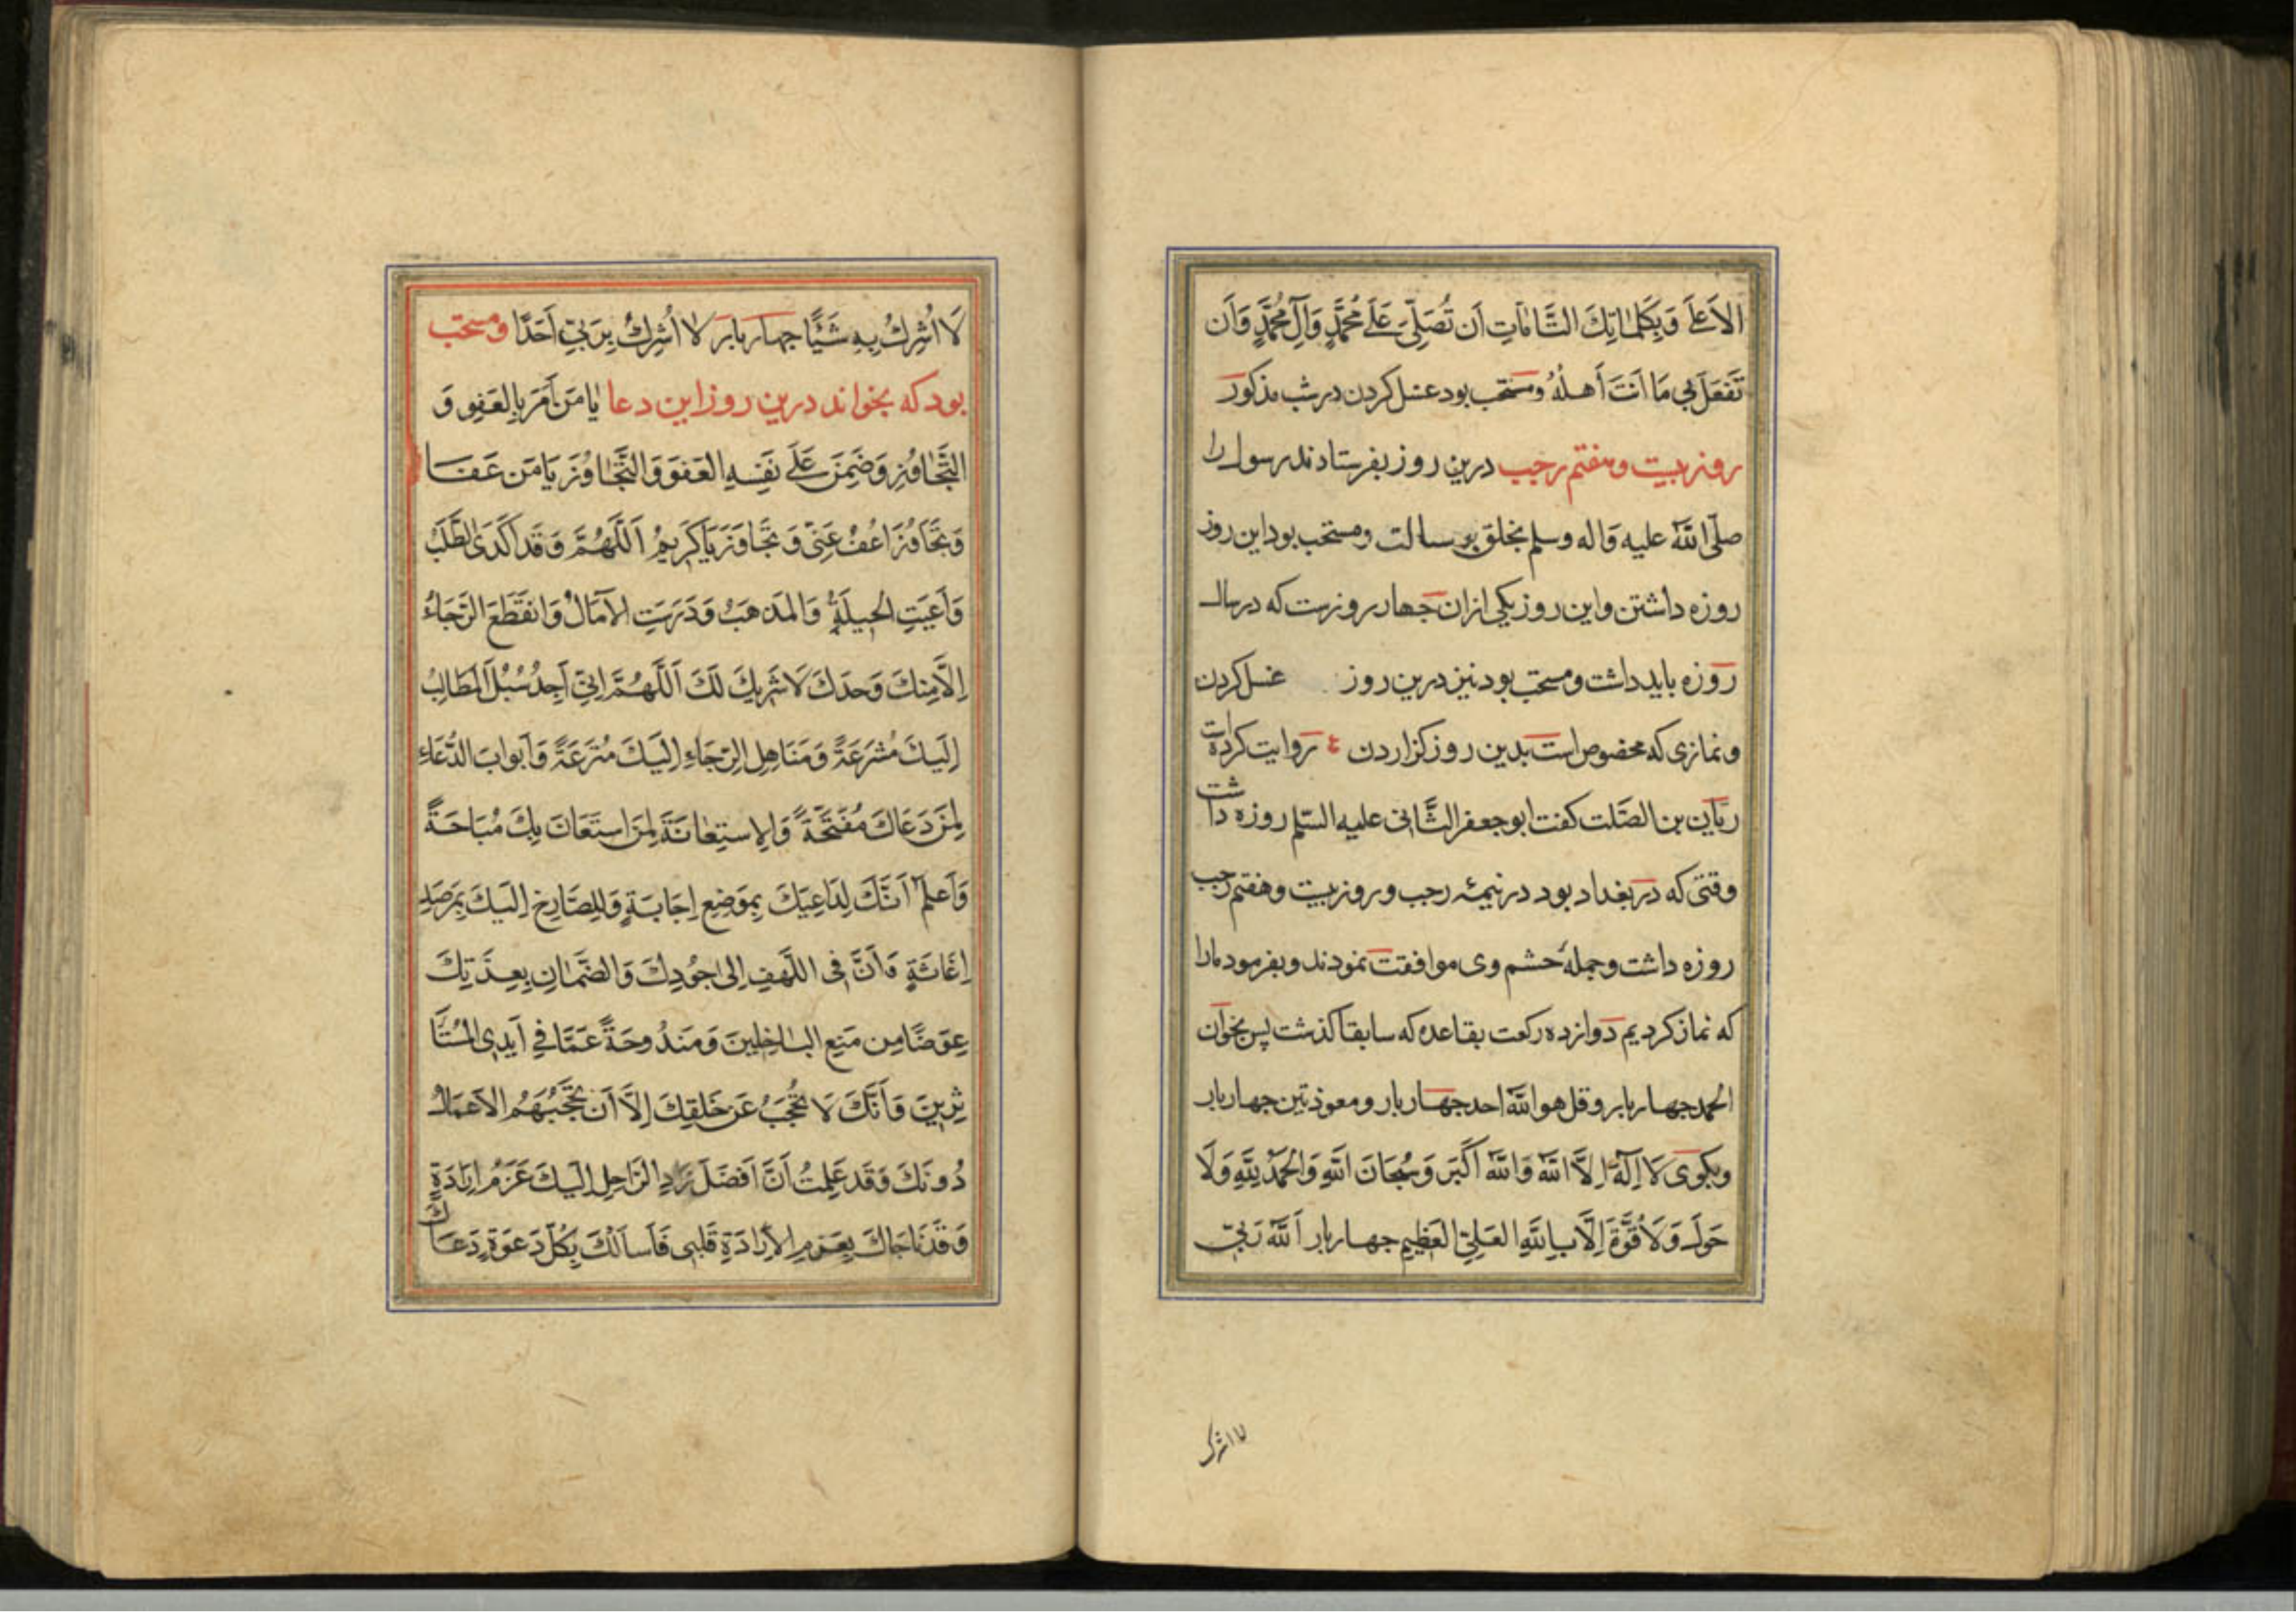 الاَعلَی وَبِکَلمَاتِكَ التَّامَّاتِ اَن تُصَلِّیَ عَلَی مُحَمَّدٍ وَآلِ مُحَمَّدٍ وَاَن
تَفعَلَ بِی مَا اَنتَ أَهلُهُ ومستحب بود غسل کردن در شب مذکور
روز بیست و هفتم رجب درین روز بفرستادند رسول را
صلّی الله علیه واله وسلم بخلق برسالت ومستحب بود این روز
روزه داشتن واین روز یکی ازان جهار روزست که در سال
روزه باید داشت ومستحب بود نیز درین روز غسل کردن
ونمازی که مخصوص است بدین روز کزاردن روایت کرده است
ریّان بن الصَّلت کفت ابو جعفر الثَّانی علیه السّلم روزه داشت
وقتی که در بغداد بود در نیمۀ رجب و روز بیست وهفتم رجب
روزه داشت وجملۀ حشم وی موافقت نمودند وبفرمود مارا
که نماز کردیم دوازده رکعت بقاعده که سابقا کذشت پس بخوان
الحمد جهار بار وقل هو الله احد جهار بار ومعوذتین جهار بار
وبکوی لَا اِلَهَ اِلاَّ اللهُ وَاللهُ اَکبَر وَسُبحَانَ اللهِ وَالحَمدُ لِلّهِ وَلَا
حَولَ وَلَا قُوَّةَ اِلَّا بِاللهِ العَلِیِّ العَظِیمِ جهار بار اَللهُ رَبّی
لا اشرك
لَا اُشرِكُ بِهِ شَیئًا جهار بار لا اُشرِكُ بِرَبّی اَحَدًا ومستحب
بود که بخواند درین روز این دعا یَا مَن اَمَرَ بِالعَفوِ وَ
التَّجَاوُزِ وَضَمِنَ عَلَی نَفسِهِ العَفوَ وَالتَّجَاوُزَ یَا مَن عَفَا
وَتَجَاوَزَ اعُفُ عَنّی وَتَجَاوَز یَا کَرِیمُ اَللَّهُمَّ وَقَد اَکدَی الطَّلَبُ
وَاَعیَتِ الحِیلَةُ وَالمَذهَبُ وَدَرَسَتِ الآمَالُ وَانقَطَعَ الرَّجَاءُ
اِلاَّ مِنكَ وَحدَكَ لَا شَرِیكَ لَكَ اَللَّهُمَّ اِنّی اَجِدُ سُبُلَ المَطَالِبِ
اِلَیكَ مُشرَعَةً وَمَنَاهِلَ الرَّجَاءِ اِلَیكَ مُترَعَةً وَاَبوابَ الدُّعَاءِ
لِمَن دَعَاكَ مُفَتَّحَةً وَالاِستِعَانَةَ لِمَنِ استَعَانَ بِكَ مُبَاحَةً
وَاَعلَمُ اَنَّكَ لِدَاعِیكَ بِمَوضِعِ اِجَابَةٍ وَلِلصَّارِخِ اِلَیكَ بِمَرصَدِ
اِغَاثَةٍ وَاَنَّ فِی اللَّهفِ اِلی جُودِكَ وَالضَّمَانِ بِعِدَتِكَ
عِوَضًا مِن مَنعِ البَاخِلِینَ وَمَندُوحَةً عَمَّا فِی اَیدِی المُستَا
ثِرِینَ وَاَنَّكَ لَا تُحجَبُ عَن خَلقِكَ اِلاَّ اَن تَحجُبَهُمُ الاَعمَالُ
دُونَكَ وَقَد عَلِمتُ اَنَّ اَفضَلَ زَادِ الرَّاحِلِ اِلَیكَ عَزمُ اِرَادَةٍ
وَقَد نَاجَاكَ بِعَزمِ الاِرَادَةِ قَلبی فَاَسأَلُكَ بِکُلِّ دَعوَةٍ دَعَاكَ